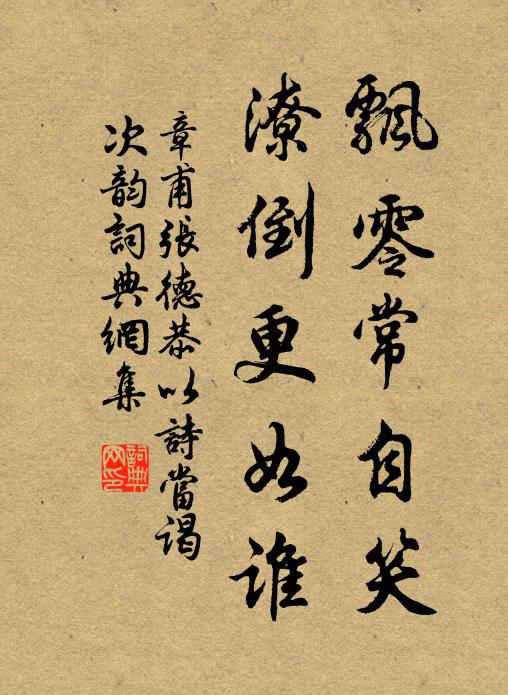 飄零常自笑
潦倒更如誰
章甫張德恭以詩當謁
次韵詞典網集
詞典网印